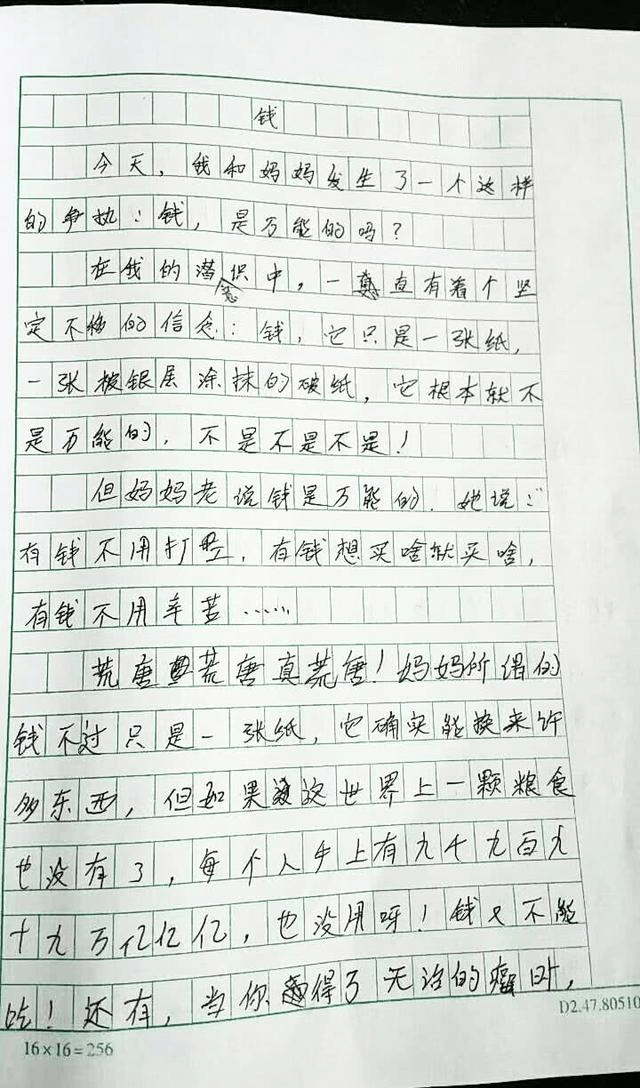 钱
今天，我和妈妈发生了一个这样
的争执：钱，是万能的吗？
在我的潜意识中，一直有着个坚
定不移的信念：钱，它只是一张纸，
一张被银层涂抹的破纸，它根本就不
是万能的，不是不是不是！
但妈妈老说钱是万能的．她说：
有钱不用打工，有钱想买啥就买啥，
有钱不用辛苦……
荒唐荒唐真荒唐！妈妈所谓的
钱不过只是一张纸，它确实能换来许
多东西，但如果这世界上一颗粮食
也没有了，每个人手上有九千九百九
十九万亿亿亿，也没用呀！钱又不能
吃！还有，当你得了无治的癌时，
16×16=256
D2.47.80510